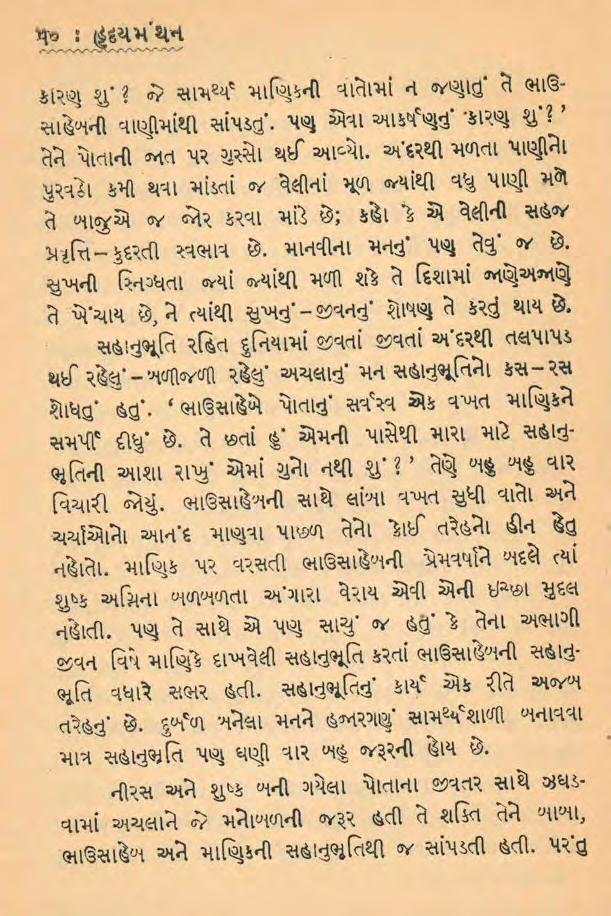 ૫૦ : હૃદયમંથન
કારણ શું ? જે સામર્થ્ય માણિકની વાતોમાં ન જણાતું તે ભાઉ-
સાહેબની વાણીમાંથી સાંપડતું. પણ એવા આકર્ષણનું કારણ શું ? ’
તેને પોતાની જાત પર ગુસ્સો થઈ આવ્યો. અંદરથી મળતા પાણીનો
પુરવઠો કમી થવા માંડતાં જ વેલીનાં મૂળ જ્યાંથી વધુ પાણી મળે
તે બાજુએ જ જોર કરવા માંડે છે; કહો કે એ વેલીની સહજ
પ્રવૃત્તિ – કુદરતી સ્વભાવ છે. માનવીના મનનું પણ તેવું જ છે.
સુખની સ્નિગ્ધતા જ્યાં જ્યાંથી મળી શકે તે દિશામાં જાણેઅજાણે
તે ખેંચાય છે, ને ત્યાંથી સુખનું – જીવનનું શોષણ તે કરતું થાય છે.
સહાનુભૂતિ રહિત દુનિયામાં જીવતાં જીવતાં અંદરથી તલપાપડ
થઈ રહેલું – બળીજળી રહેલું અચલાનું મન સહાનુભૂતિનો કસ – રસ
શોધતું હતું. ‘ ભાઉસાહેબે પોતાનું સર્વસ્વ એક વખત માણિકને
સમર્પી દીધું છે. તે છતાં હું એમની પાસેથી મારા માટે સહાનુ-
ભૂતિની આશા રાખું એમાં ગુનો નથી શું ? ’ તેણે બહુ બહુ વાર
વિચારી જોયું. ભાઉસાહેબની સાથે લાંબા વખત સુધી વાતો અને
ચર્ચાઓનો આનંદ માણવા પાછળ તેનો કોઈ તરેહનો હીન હેતુ
નહોતો. માણિક પર વરસતી ભાઉસાહેબની પ્રેમવર્ષાને બદલે ત્યાં
શુષ્ક અગ્નિના બળબળતા અંગારા વેરાય એવી એની ઇચ્છા મુદ્દલ
નહોતી. પણ તે સાથે એ પણ સાચું જ હતું કે તેના અભાગી
જીવન વિષે માણિકે દાખવેલી સહાનુભૂતિ કરતાં ભાઉસાહેબની સહાનુ-
ભૂતિ વધારે સભર હતી. સહાનુભૂતિનું કાર્ય એક રીતે અજબ
તરેહનું છે. દુર્બળ બનેલા મનને હજારગણું સામર્થ્યશાળી બનાવવા
માત્ર સહાનુભૂતિ પણ ઘણી વાર બહુ જરૂરની હોય છે.
નીરસ અને શુષ્ક બની ગયેલા પોતાના જીવતર સાથે ઝઘડ-
વામાં અચલાને જે મનોબળની જરૂર હતી તે શક્તિ તેને બાબા,
ભાઉસાહેબ અને માણિકની સહાનુભૂતિથી જ સાંપડતી હતી. પરંતુ